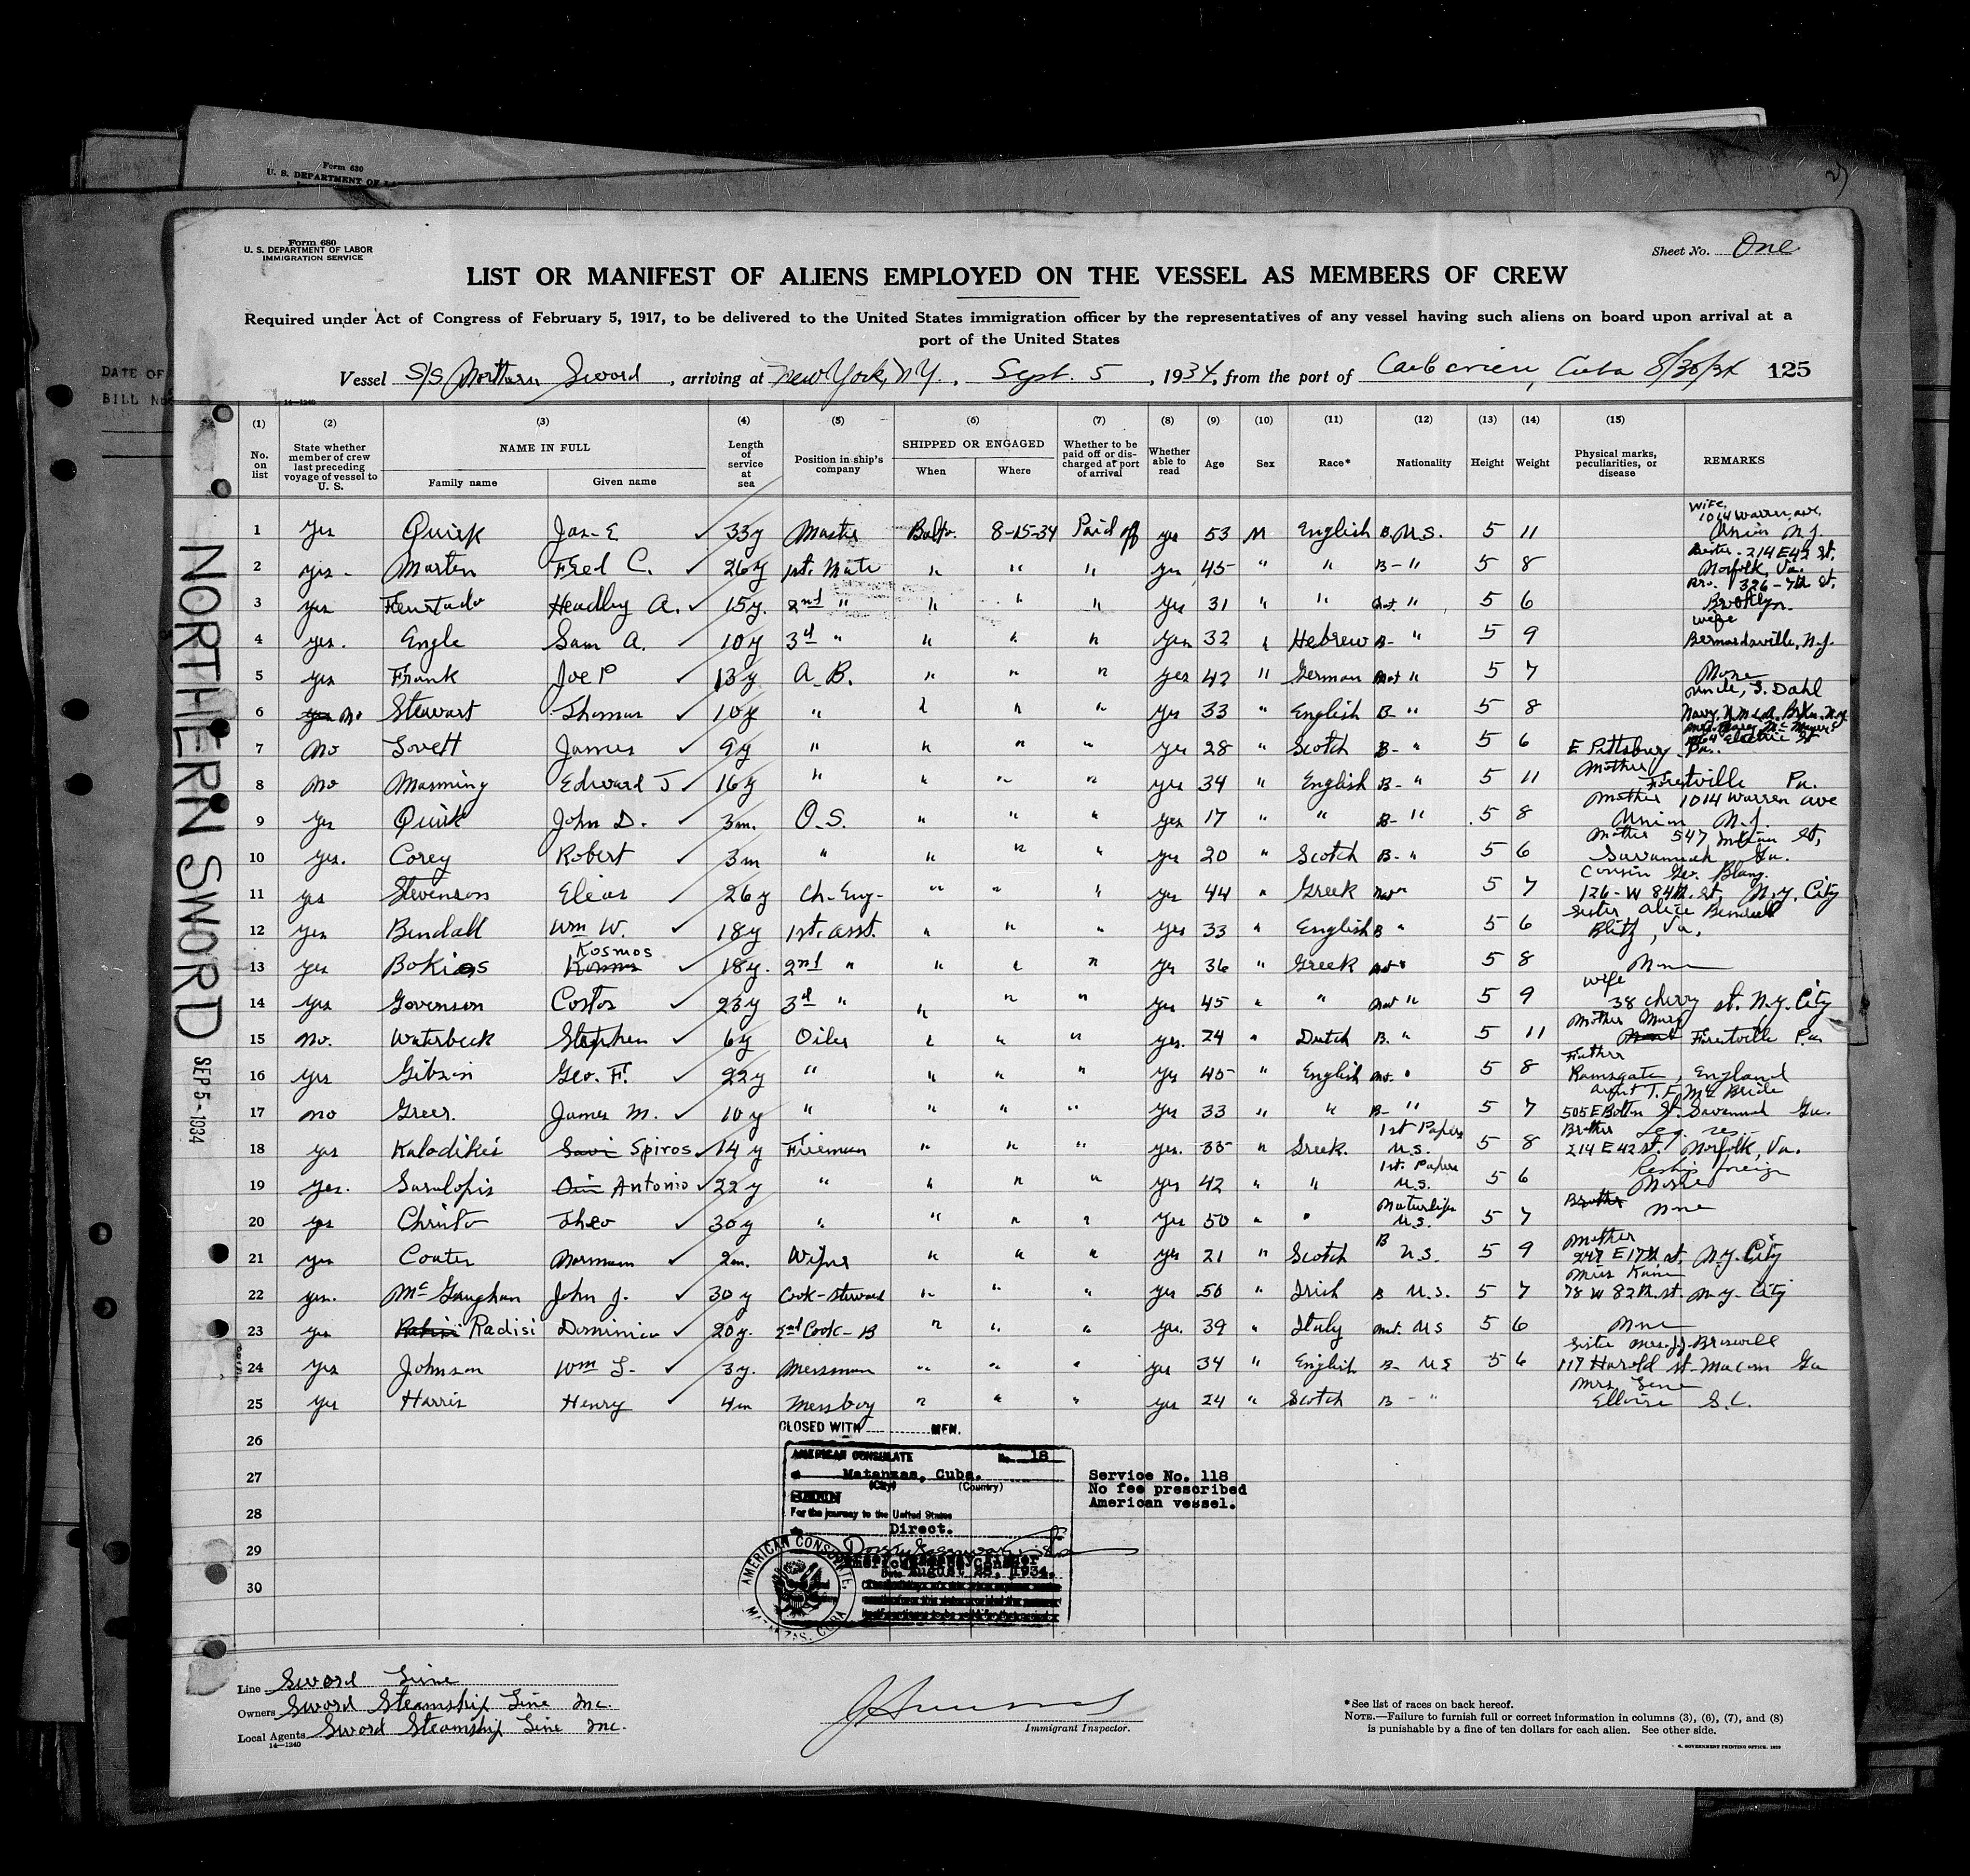 Form 630
U. S. DEPARTMENT OF LA
DATE OF
BILL No
Form 680
U. S. DEPARTMENT OF LABOR
IMMIGRATION SERVICE
Sheet No. One
LIST OR MANIFEST OF ALIENS EMPLOYED ON THE VESSEL AS MEMBERS OF CREW
Required under Act of Congress of February 5, 1917, to be delivered to the United States immigration officer by the representatives of any vessel having such aliens on board upon arrival at a
port of the United States
Vessel S/S Northern Sword, arriving at New York, N.Y., Sept. 5, 1934, from the port of Caibarien, Cuba 8/30/34 125
14—1240
(1) (2) (3) (4) (5) (6) (7) (8) (9) (10) (11) (12) (13) (14) (15)
No. on list State whether member of crew last preceding voyage of vessel to U. S. NAME IN FULL Family name Given name Length of service at sea Position in ship's company SHIPPED OR ENGAGED When Where Whether to be paid off or discharged at port of arrival Whether able to read Age Sex Race* Nationality Height Weight Physical marks, peculiarities, or disease REMARKS
1 yes Quirk Jas. E 33y Master Balto. 8-15-34 Paid off yes 53 M English B. U.S. 5 11 wife, 1014 Warren ave. Union N.J.
2 yes - Marten Fred C. 26y 1st. Mate " " " yes 45 " " B- " 5 8 Sister - 214 E 42 St. Norfolk, Va.
3 yes Furtado Headley A. 15y. 2nd " " " " yes 31 " " Nat. " 5 6 Bro. 326 - 7th St. Brooklyn.
4 yes. Engle Sam A. 10y 3d " " " " yes 32 " Hebrew B- " 5 9 wife Bernardsville, N.J.
5 yes Frank Joe P 13y A.B. " " " yes 42 " German Nat " 5 7 None
6 yes no Stewart Thomas 10y " " " " yes 33 " English B- " 5 8 uncle, S. Dahl Navy. Y.M.C.A. Bkn. N.Y.
7 no Lovett James 9y " " " " yes 28 " Scotch B- " 5 6 Electric St E Pittsburg Pa.
8 no Manning Edward J 16y " " " " yes 34 " English B- " 5 11 Mother Forestville Pa.
9 yes Quirk John D. 3m. O.S. " " " yes 17 " " B- " 5 8 Mother 1014 Warren ave Union N.J.
10 yes. Corey Robert 3m " " " " yes 20 " Scotch B- " 5 6 Mother 547 St, Savannah Ga.
11 yes Stevenson Elias 26y Ch. Eng- " " " yes 44 " Greek Nat " 5 7 Cousin Geo. Blang. 126 - W 84th. St, N.Y. City
12 yes Bendall Wm W. 18y 1st. asst. " " " yes 33 " English B " 5 6 Sister Alice Bendall , Va.
13 yes Bokias Kosmos 18y. 2nd " " " " yes 36 " Greek Nat " 5 8 None
14 yes Govenson Costas 23y 3d " " " " yes 45 " " Nat " 5 9 wife 38 Cherry st. N.Y. City
15 no. Waterbeck Stephen 6y Oiler " " " yes. 24 " Dutch B. " 5 11 Mother Mary Forestville Pa
16 yes Gibson Geo. F. 22y " " " " yes 45 " English Nat. " 5 8 Father Ramsgate, England
17 no Greer. James M. 10y " " " " yes 33 " " B- " 5 7 Aunt T. F. McBride 505 E Bolton St. Savannah Ga.
18 yes Kaladikis Spiros 14y Fireman " " " yes. 35 " Greek. 1st Papers U.S. 5 8 Brother Leg. res. 214 E 42 st. Norfolk, Va.
19 yes. Sarulopis Antonio 22y " " " " yes 42 " " 1st. Papers U.S. 5 6 Reship foreign None
20 yes Christo Theo 30y " " " " yes 50 " " U.S. 5 7 Brother None
21 yes Coutes Norman 2m. Wiper " " " yes 21 " Scotch B U.S. 5 9 Mother 247 E 17th st. N.Y. City
22 yes. McGaughan John J. 30y Cook-steward " " " yes 50 " Irish B U.S. 5 7 Miss Kane 78 W 82th. st. N.Y. City
23 yes Radisi Dominica 20y. 2nd Cook-B " " " yes. 39 " Italy Nat. US 5 6 None
24 yes Johnson Wm L. 3y. Messman " " " yes 34 " English B- US 5 6 Sister Mrs. J.J. Braswell 117 Harold st. Macon Ga
25 yes Harris Henry 4m Messboy " " " yes 24 " Scotch B - " Mrs. Elloree S.C.
26
27
28
29
30
NORTHERN SWORD SEP 5 - 1934
CLOSED WITH MEN.
AMERICAN CONSULATE No. 18
Matanzas, Cuba.
(City) (Country)
For the journey to the United States
Direct.
American Consul
Date August 28, 1934.
AMERICAN CONSULATE, MATANZAS, CUBA
Service No. 118
No fee prescribed
American vessel.
Line Sword Line
Owners Sword Steamship Line Inc.
Local Agents Sword Steamship Line Inc.
14—1240
Immigrant Inspector.
*See list of races on back hereof.
NOTE.—Failure to furnish full or correct information in columns (3), (6), (7), and (8)
is punishable by a fine of ten dollars for each alien. See other side.
GOVERNMENT PRINTING OFFICE